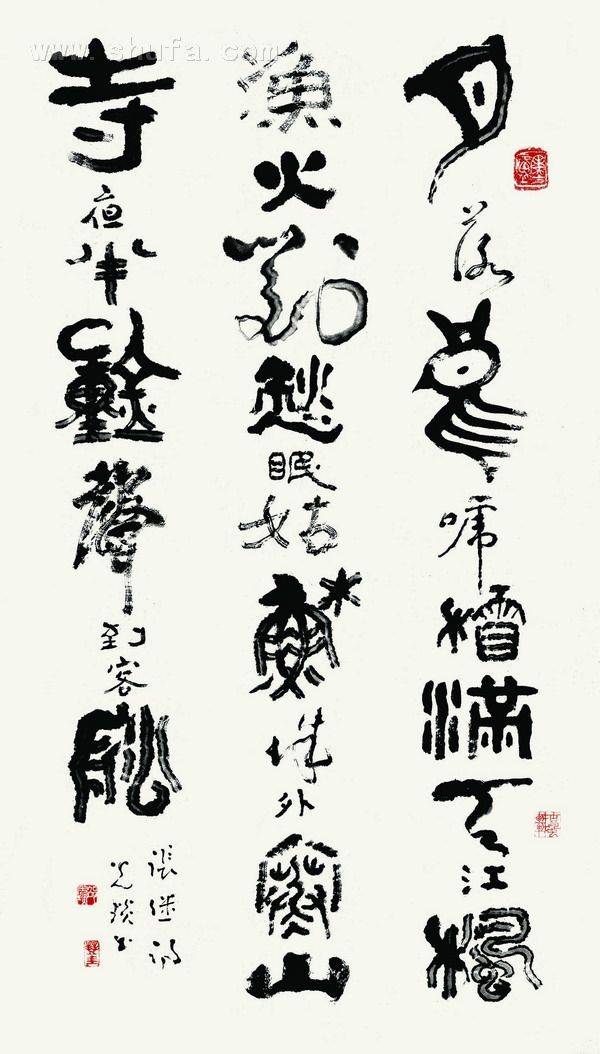 月落烏啼霜滿天江楓
漁火對愁眠姑蘇城外寒山
寺夜半鐘聲到客船
張継詩
www.shufa.com